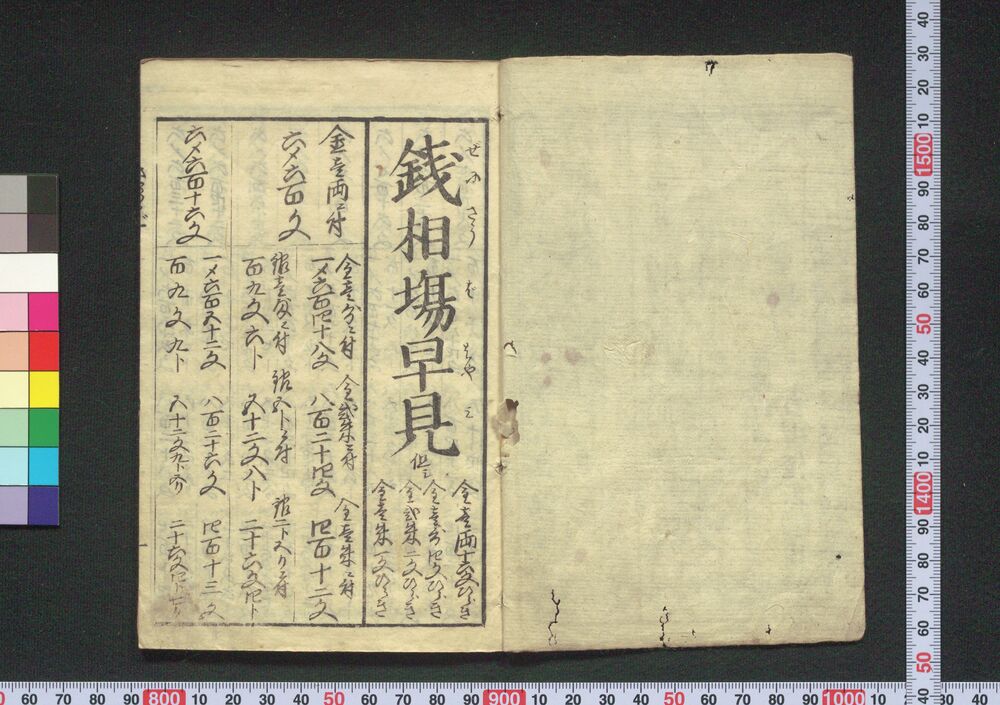 銭相場早見
ぜに さう ば はや み
但シ
金壱両十六文ひらき
金壱分四文ひらき
金弐朱二文ひらき
金壱朱一文ひらき
金壱両ニ付
六〆六百文
金壱分ニ付
一〆六百四十八文
金弐朱ニ付
八百二十四文
金壱朱ニ付
四百十二文
銀壱匁ニ付
百九文六卜
銀五卜ニ付
五十二文八卜
銀二卜五リニ付
二十六文四卜
六〆六百十六文
一〆六百五十二文
八百二十六文
四百十三文
百九文九卜
五十二文九卜
二十六文四卜